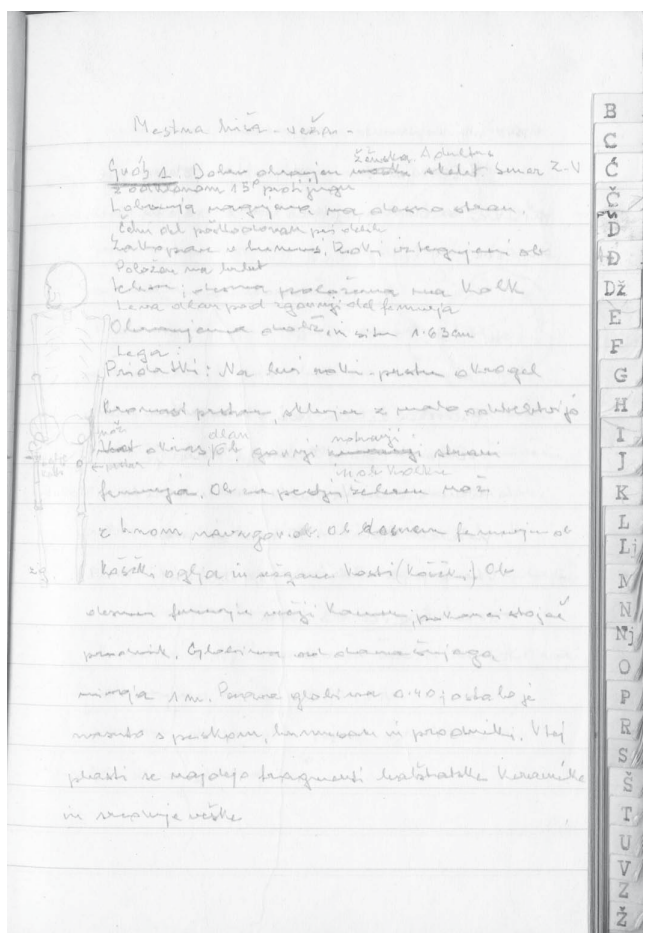 Mestna hiša - veža -
ženska Adultus
Grob 1. Dobro ohranjen moški skelet Smer Z-V
z odklonom 15° proti jugu
Lobanja nagnjena na desno stran.
Čelni del poškodovan pri delih
Zakopan v humus. Roki iztegnjeni ob
Položen na hrbet
telesu; desna položena na kolk
Leva dlan pod zgornji del femurja
Ohranjena in situ 1.63cm
Lega:
Pridatki: Na levi roki - prstan okrogel
Bronast prstan, sklenjen z malo odebelitvijo
dlan notranji
okras Ob gornji strani
in ob kolku
femurja. Ob železen nož
z trnom navzgor. Ob desnem femurju ob
Koščki oglja in žgane kosti (Koščki) Ob
desnem femurju večji kamen, pokonci stoječ
prodnik. Globina od današnjega
nivoja 1 m. 0.40 ostalo je
nasuto s peskom, humusom in prodniki. V tej
plasti se najdejo fragmenti halštatske keramike
in srednjeveške
nož
prstan
B
C
Ć
Č
D
Đ
Dž
E
F
G
H
I
J
K
L
Lj
M
N
Nj
O
P
R
S
Š
T
U
V
Z
Ž